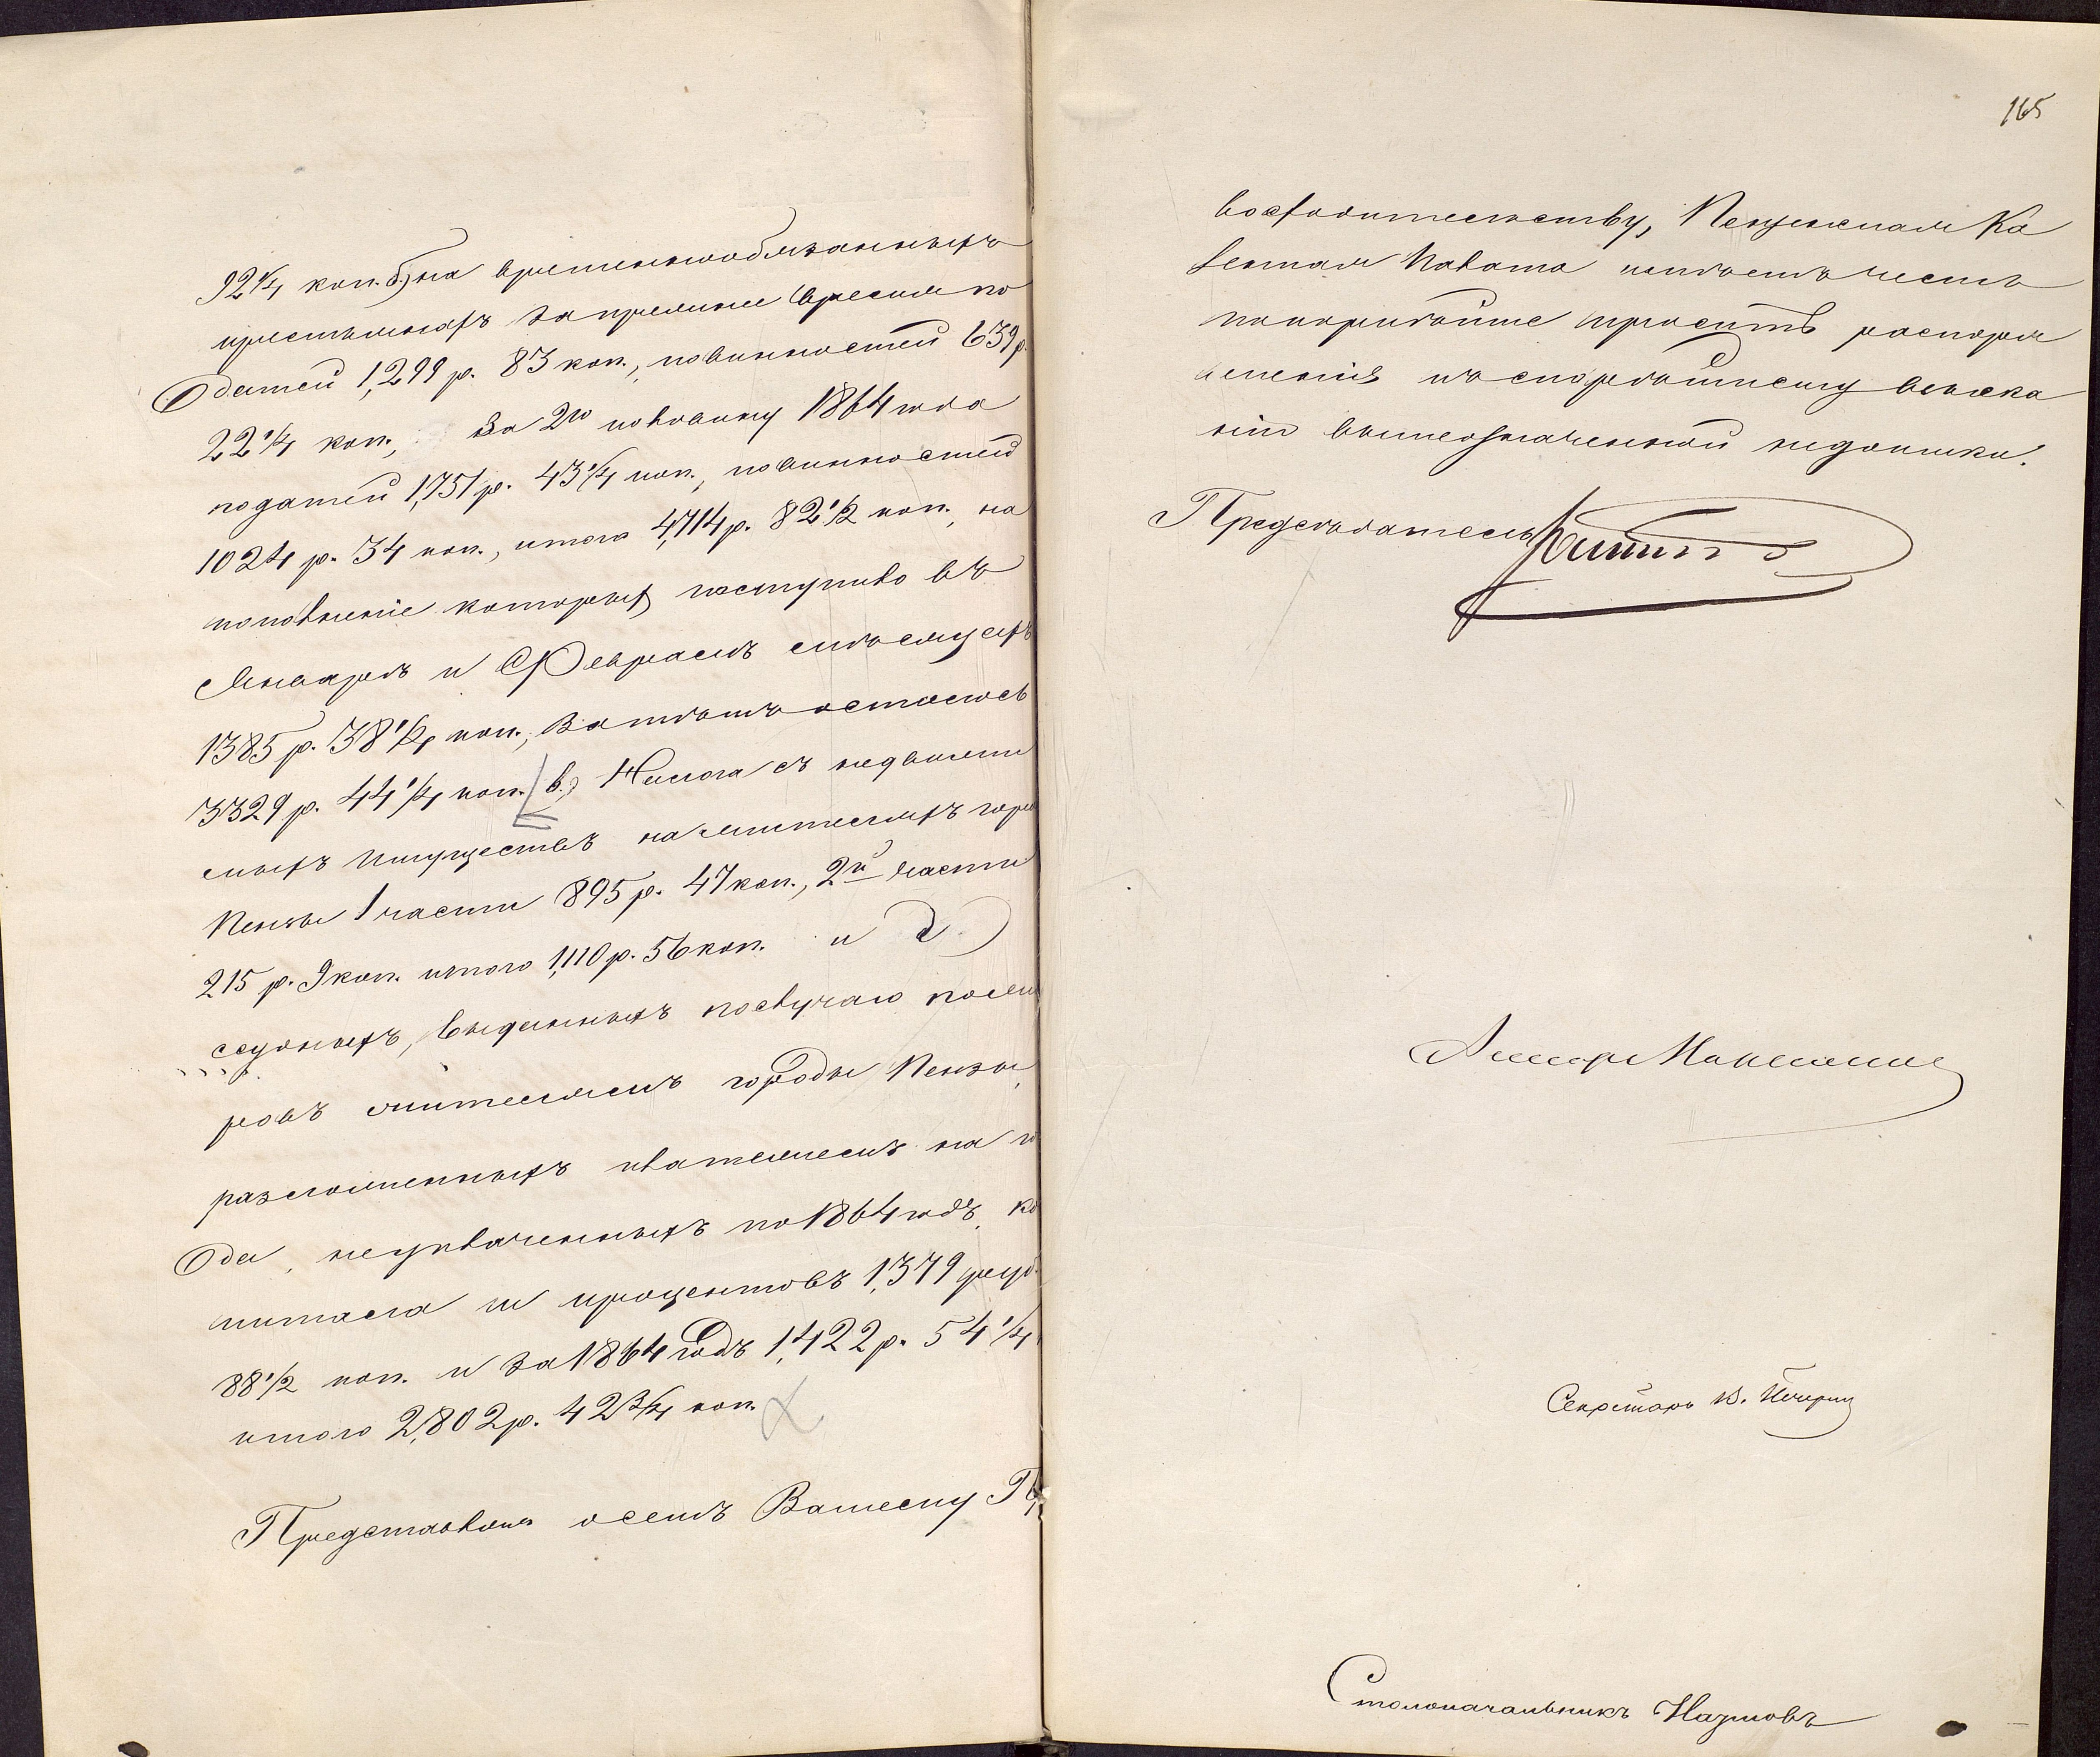 92 1/4 коп. б) на временнообязанныхъ
крестьянахъ за прежнее время по
датей 1,299 р. 83 коп., повинностей 639 р.
22 1/4 коп., за 2ю половину 1864 года
податей 1,751 р. 43 1/4 коп., повинностей
1024 р. 34 коп., итого 4,714 р. 82 1/2 коп., на
пополненіе которыхъ поступило въ
Январѣ и Февралѣ мѣсяцахъ
1385 р. 38 1/4 коп., затѣмъ осталось
3329 р. 44 1/4 коп. в.) Налога съ недвижи
мыхъ имуществъ на жителяхъ гор.
Пензы 1 части 895 р. 47 коп., 2й части
215 р. 9 коп. итого 1,110 р. 56 коп. и д)
ссудныхъ, выданныхъ послучаю пожа
ровъ жителямъ города Пензы,
разсроченныхъ платежемъ на го
да, неуплаченныхъ по 1864 годъ, ка
питала и процентовъ 1,379 руб.
88 1/2 коп. и за 1864 годъ 1,422 р. 54 1/4
итого 2,802 р. 42 3/4 коп.
Представляя осемъ Вашему Пр
165
восходительству, Пензенская Ка
зенная Палата имѣетъ честь
покорнѣйше просить распоря
женія къ скорѣйшему взыска
нію вышеозначенной недоимки.
Предсѣдатель
Секретарь В. Печерин
Столоначальникъ Назимовъ